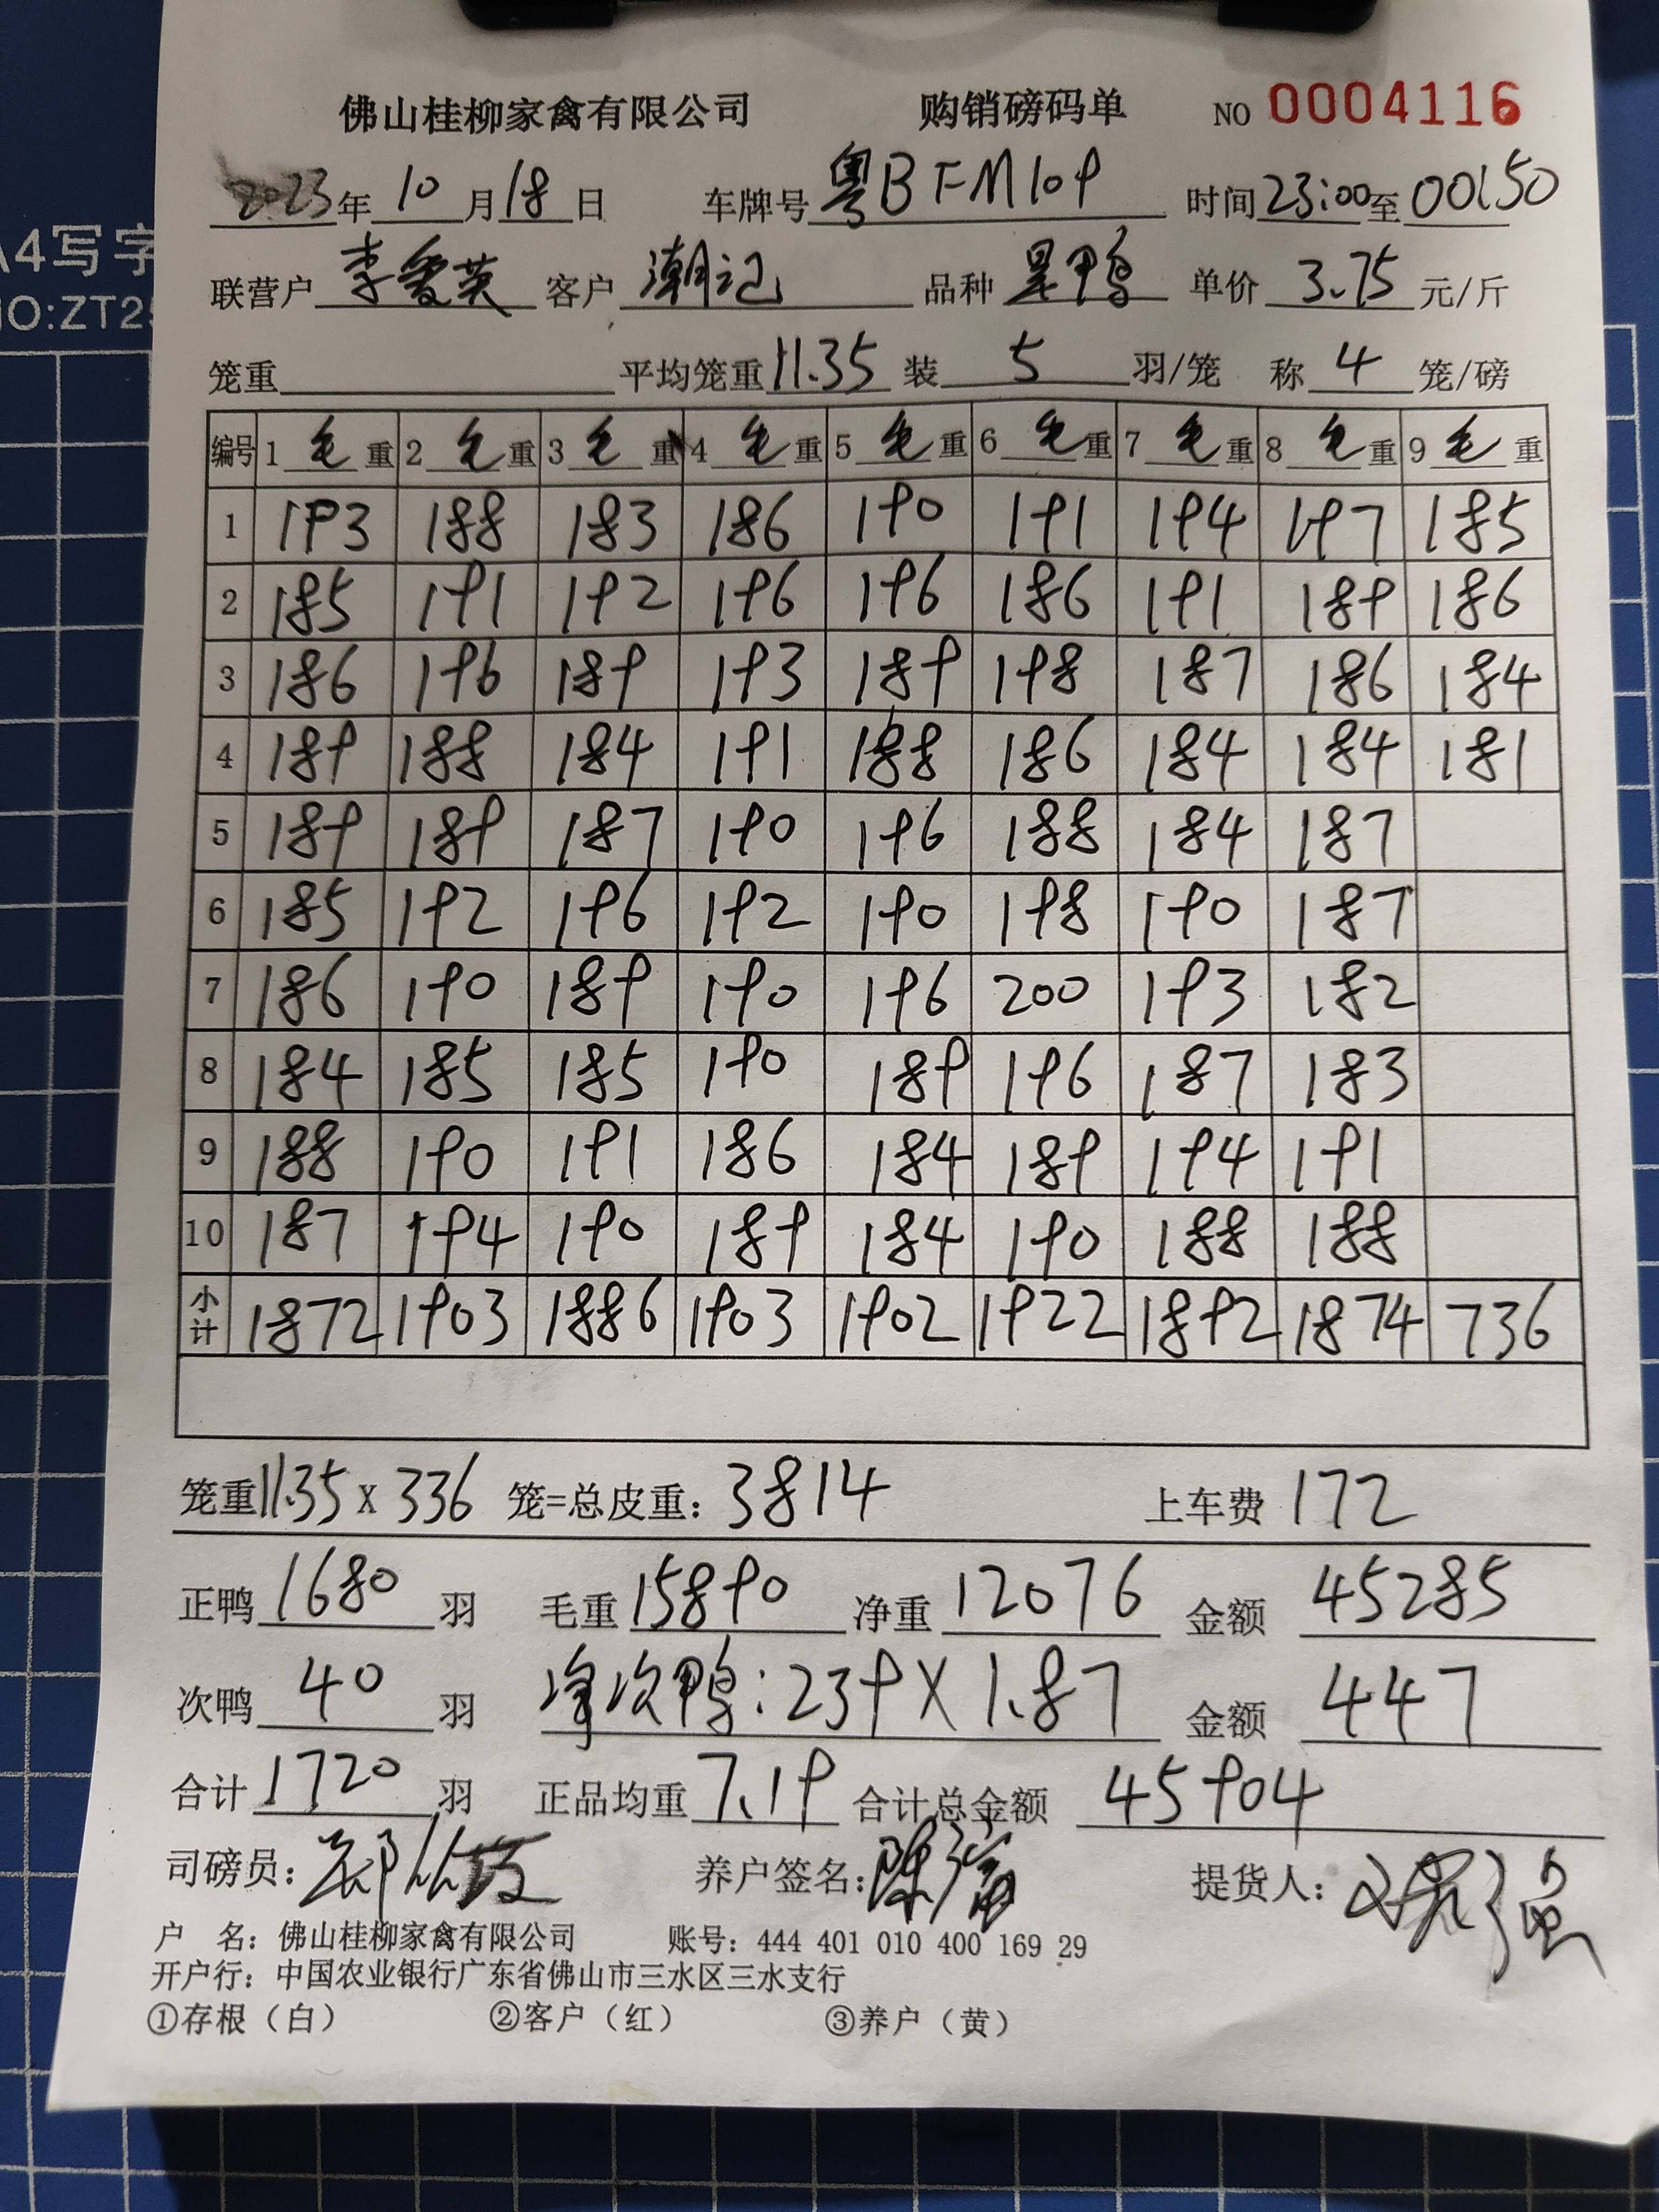 佛山桂柳家禽有限公司 购销磅码单 NO 0004116
2023年10月18日 车牌号 粤BFM109 时间23:00至00:50
联营户 李爱英 客户 潮记 品种 星鸭 单价 3.75 元/斤
笼重 平均笼重 11.35 装 5 羽/笼 称 4 笼/磅
编号 1 毛 重 2 毛 重 3 毛 重 4 毛 重 5 毛 重 6 毛 重 7 毛 重 8 毛 重 9 毛 重
1 193 188 183 186 190 191 194 197 185
2 185 191 192 196 196 186 191 189 186
3 186 196 189 193 189 198 187 186 184
4 189 188 184 191 188 186 184 184 181
5 189 189 187 190 196 188 184 187
6 185 192 196 192 190 198 190 187
7 186 190 189 190 196 200 193 182
8 184 185 185 190 189 196 187 183
9 188 190 191 186 184 189 194 191
10 187 194 190 189 184 190 188 188
小计 1872 1903 1886 1903 1902 1922 1892 1874 736
笼重11.35 x 336 笼=总皮重：3814 上车费 172
正鸭 1680 羽 毛重 15890 净重 12076 金额 45285
次鸭 40 羽 净次鸭：239 X 1.87 金额 447
合计 1720 羽 正品均重 7.19 合计总金额 45904
司磅员： 养户签名： 提货人：
户 名：佛山桂柳家禽有限公司 账号：444 401 010 400 169 29
开户行：中国农业银行广东省佛山市三水区三水支行
①存根（白） ②客户（红） ③养户（黄）
A4写字
NO:ZT25